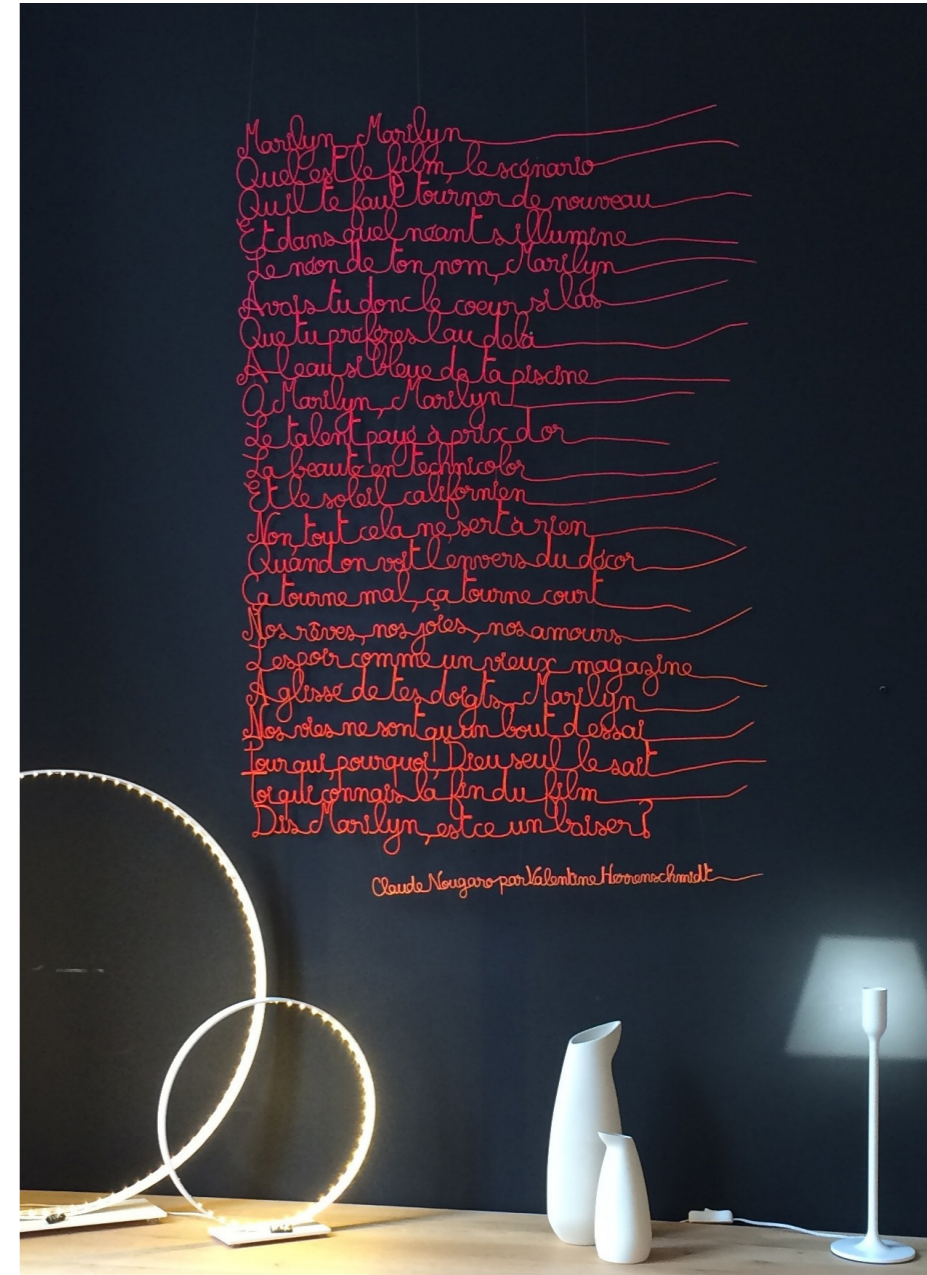 Marilyn, Marilyn
Quel est le film, le scénario
Qu'il te faut tourner de nouveau
Et dans quel néant s'illumine
Le néon de ton nom, Marilyn
Avais tu donc le coeur si las
Que tu préfères l'au delà
A l'eau si bleue de ta piscine
O Marilyn, Marilyn
Le talent payé à prix d'or
La beauté en technicolor
Et le soleil californien
Non, tout cela ne sert à rien
Quand on voit l'envers du décor
Ça tourne mal, ça tourne court
Nos rêves, nos joies, nos amours
L'espoir comme un vieux magazine
A glissé de tes doigts, Marilyn
Nos vies ne sont qu'un bout d'essai
Pour qui, pourquoi, Dieu seul le sait
Toi qui connais la fin du film
Dis Marilyn, est ce un baiser ?
Claude Nougaro par Valentine Herrenschmidt